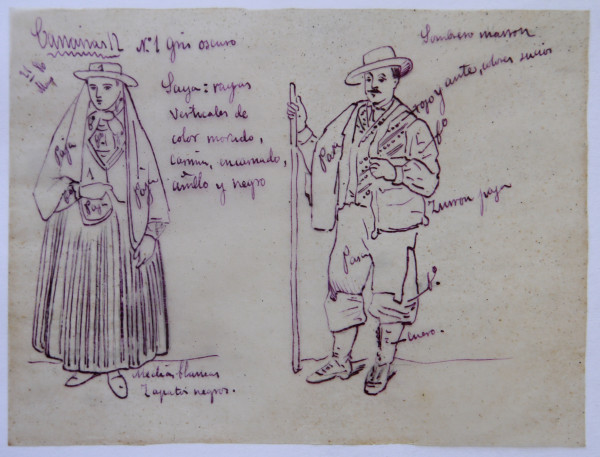 Canarias 12 Nº 1 gris oscuro
Saya: rayas
verticales de
color morado,
encarnado,
y negro
Paja
Paja
Paja
Medias blancas
Zapatos negros.
Sombrero marron
rojo y ante, colores sucios
Zurron paja
cuero.